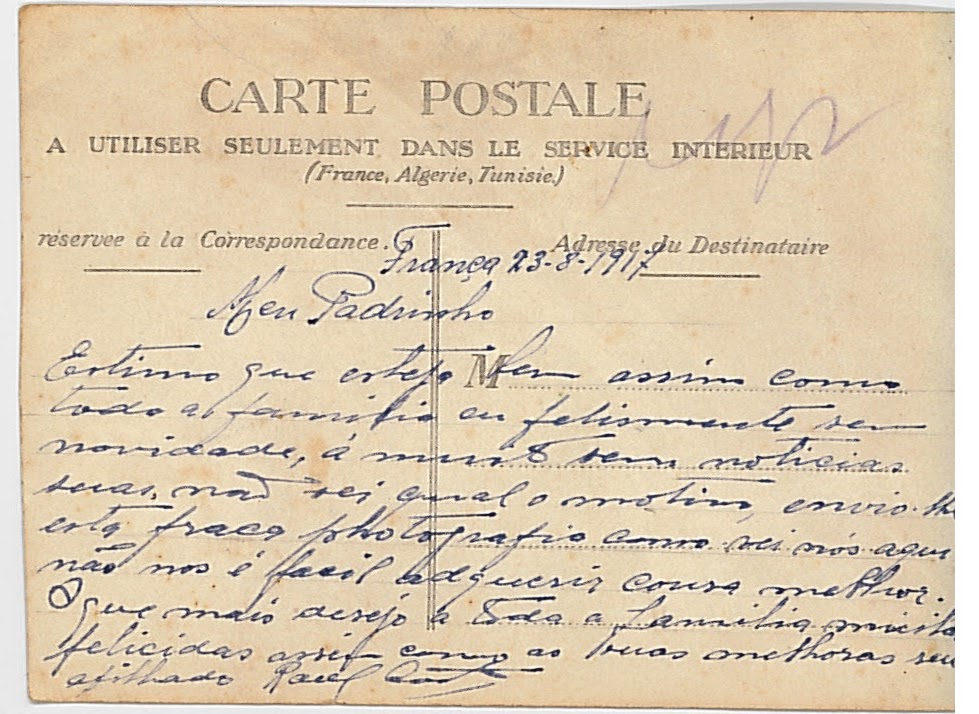 CARTE POSTALE
A UTILISER SEULEMENT DANS LE SERVICE INTERIEUR
(France, Algerie, Tunisie.)
réservee à la Correspondance.
Adresse du Destinataire
França 23-8-1917
Meu Padrinho
M
Estimo que esteja bem assim como
toda a familia eu felismente sem
novidade, á muito sem noticias
suas, não sei qual o motivo, envio-lhe
esta fraca photografia como vei nós aqui
não nos é facil adquerir cousa melhor.
O que mais desejo a toda a familia muita
felicidas assim como as suas melhoras seu
afilhado Raul